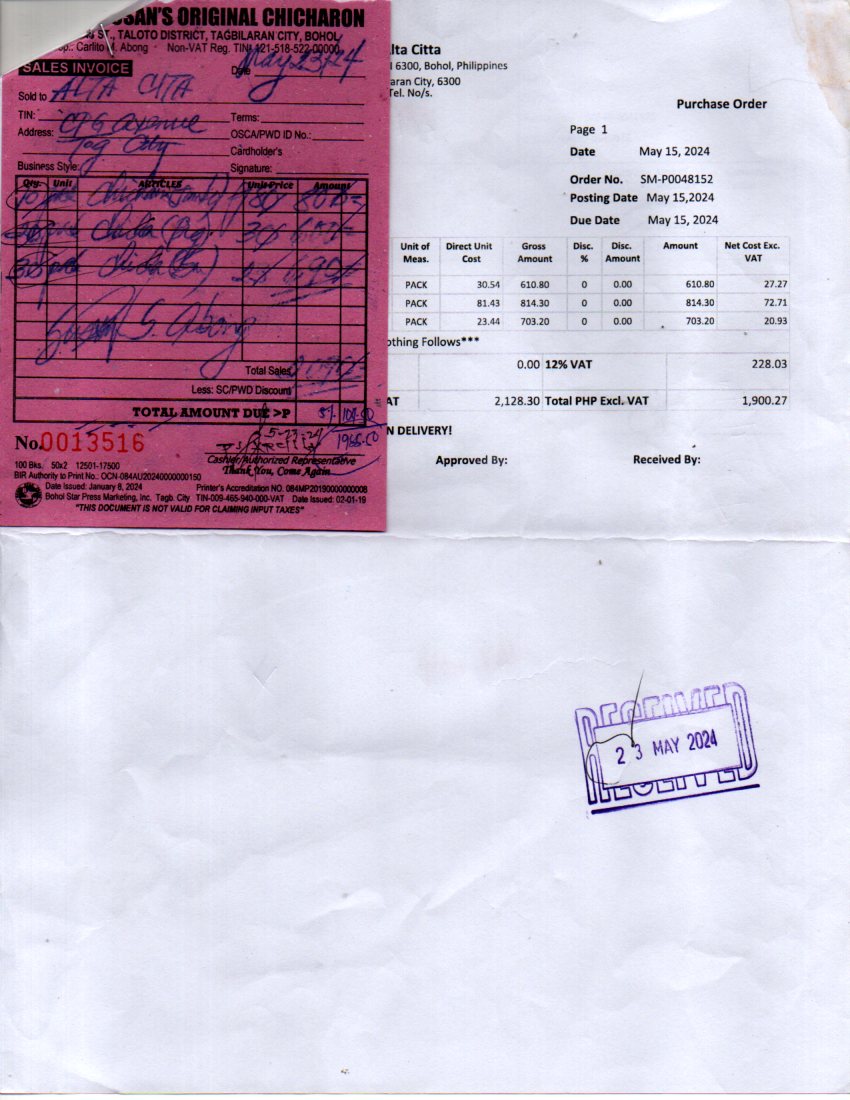 SAN'S ORIGINAL CHICHARON
ST., TALOTO DISTRICT, TAGBILARAN CITY, BOHOL
op.: Carlito M. Abong - Non-VAT Reg. TIN 121-518-522-00000
SALES INVOICE
Date May 23/24
Sold to ALTA CITA
TIN: Terms:
Address: CPG avenue OSCA/PWD ID No.:
Tag City Cardholder's
Business Style: Signature:
Qty. Unit ARTICLES Unit Price Amount
Total Sales
Less: SC/PWD Discount
TOTAL AMOUNT DUE >P 5%
No. 0013516
5-23-24
Cashier/Authorized Representative
Thank You, Come Again
100 Bks. 50x2 12501-17500
BIR Authority to Print No.: OCN-084AU20240000000150
Date Issued: January 8, 2024 Printer's Accreditation NO. 084MP20190000000008
Bohol Star Press Marketing, Inc. Tagb. City TIN-009-465-940-000-VAT Date Issued: 02-01-19
"THIS DOCUMENT IS NOT VALID FOR CLAIMING INPUT TAXES"
lta Citta
6300, Bohol, Philippines
aran City, 6300
Tel. No/s.
Purchase Order
Page 1
Date May 15, 2024
Order No. SM-P0048152
Posting Date May 15,2024
Due Date May 15, 2024
Unit of Meas. Direct Unit Cost Gross Amount Disc. % Disc. Amount Amount Net Cost Exc. VAT
PACK 30.54 610.80 0 0.00 610.80 27.27
PACK 81.43 814.30 0 0.00 814.30 72.71
PACK 23.44 703.20 0 0.00 703.20 20.93
othing Follows***
0.00 12% VAT 228.03
AT 2,128.30 Total PHP Excl. VAT 1,900.27
N DELIVERY!
Approved By: Received By:
RECEIVED
23 MAY 2024
RECEIVED